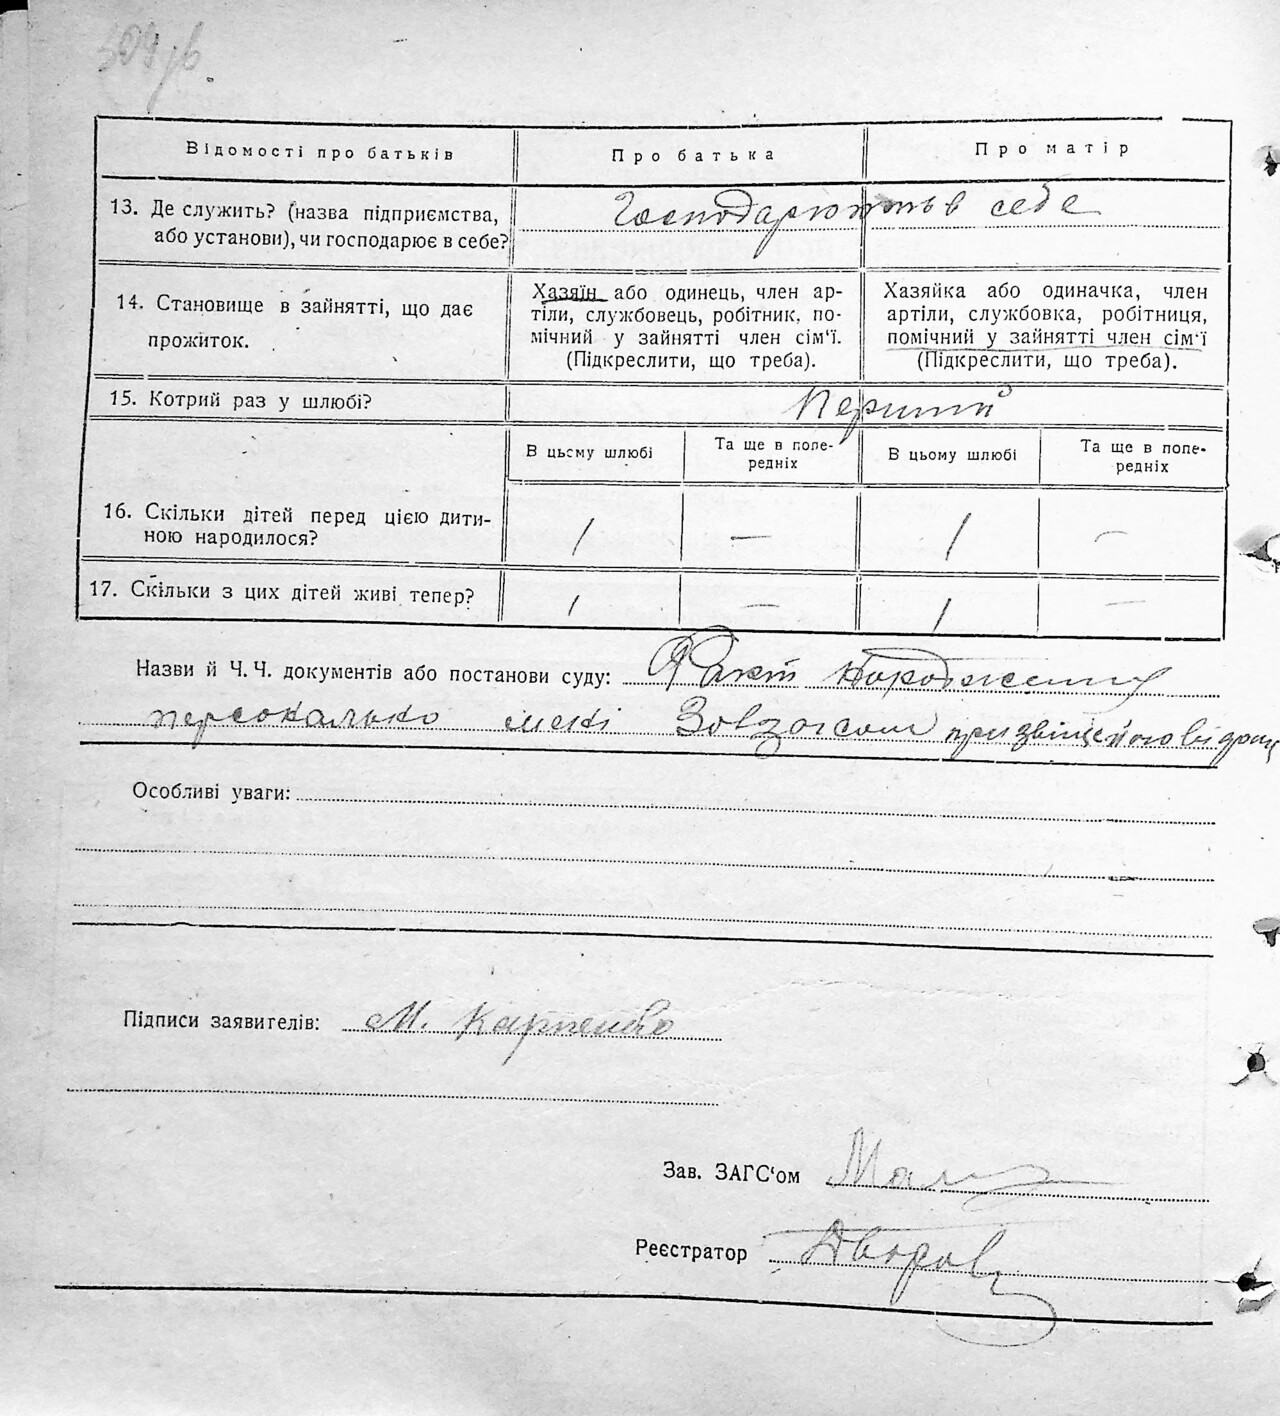 509 зв.
Відомості про батьків
Про батька
Про матір
13. Де служить? (назва підприємства,
або установи), чи господарює в себе?
Господарюють в себе
14. Становище в зайнятті, що дає
прожиток.
Хазяїн або одинець, член ар-
тіли, службовець, робітник, по-
мічний у зайнятті член сім'ї.
(Підкреслити, що треба).
Хазяйка або одиначка, член
артіли, службовка, робітниця,
помічний у зайнятті член сім'ї
(Підкреслити, що треба).
15. Котрий раз у шлюбі?
Перший
В цьому шлюбі
Та ще в попе-
редніх
В цьому шлюбі
Та ще в попе-
редніх
16. Скільки дітей перед цією дити-
ною народилося?
1 — 1 —
17. Скільки з цих дітей живі тепер?
1 — 1 —
Назви й Ч. Ч. документів або постанови суду: Факт народження
персонально мені Завзагсом
Особливі уваги:
Підписи заявителів: М. Карпенко
Зав. ЗАГС'ом
Реєстратор